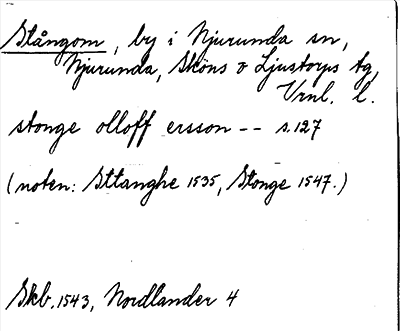 Stångom, by i Njurunda sn,
Njurunda, Sköns o Ljustorps tg,
Vrnl. l.
stonge olloff ersson -- s.127
(noten: Sttanghe 1535, Stonge 1547.)
Skb. 1543, Nordlander 4